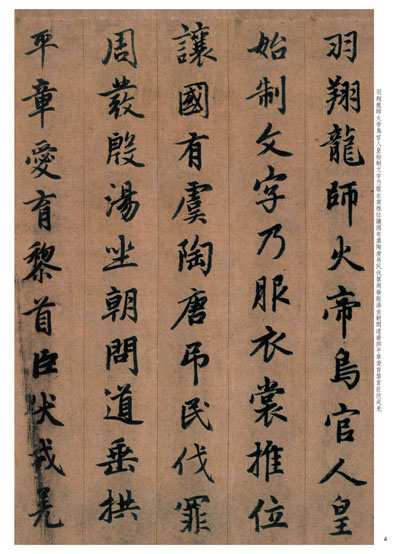 羽翔龍師火帝鳥官人皇始制文字乃服衣裳推位讓國有虞陶唐吊民伐罪周發殷湯坐朝問道垂拱平章愛育黎首臣伏戎羌
羽翔龍師火帝鳥官人皇
始制文字乃服衣裳推位
讓國有虞陶唐吊民伐罪
周發殷湯坐朝問道垂拱
平章愛育黎首臣伏戎羌
4